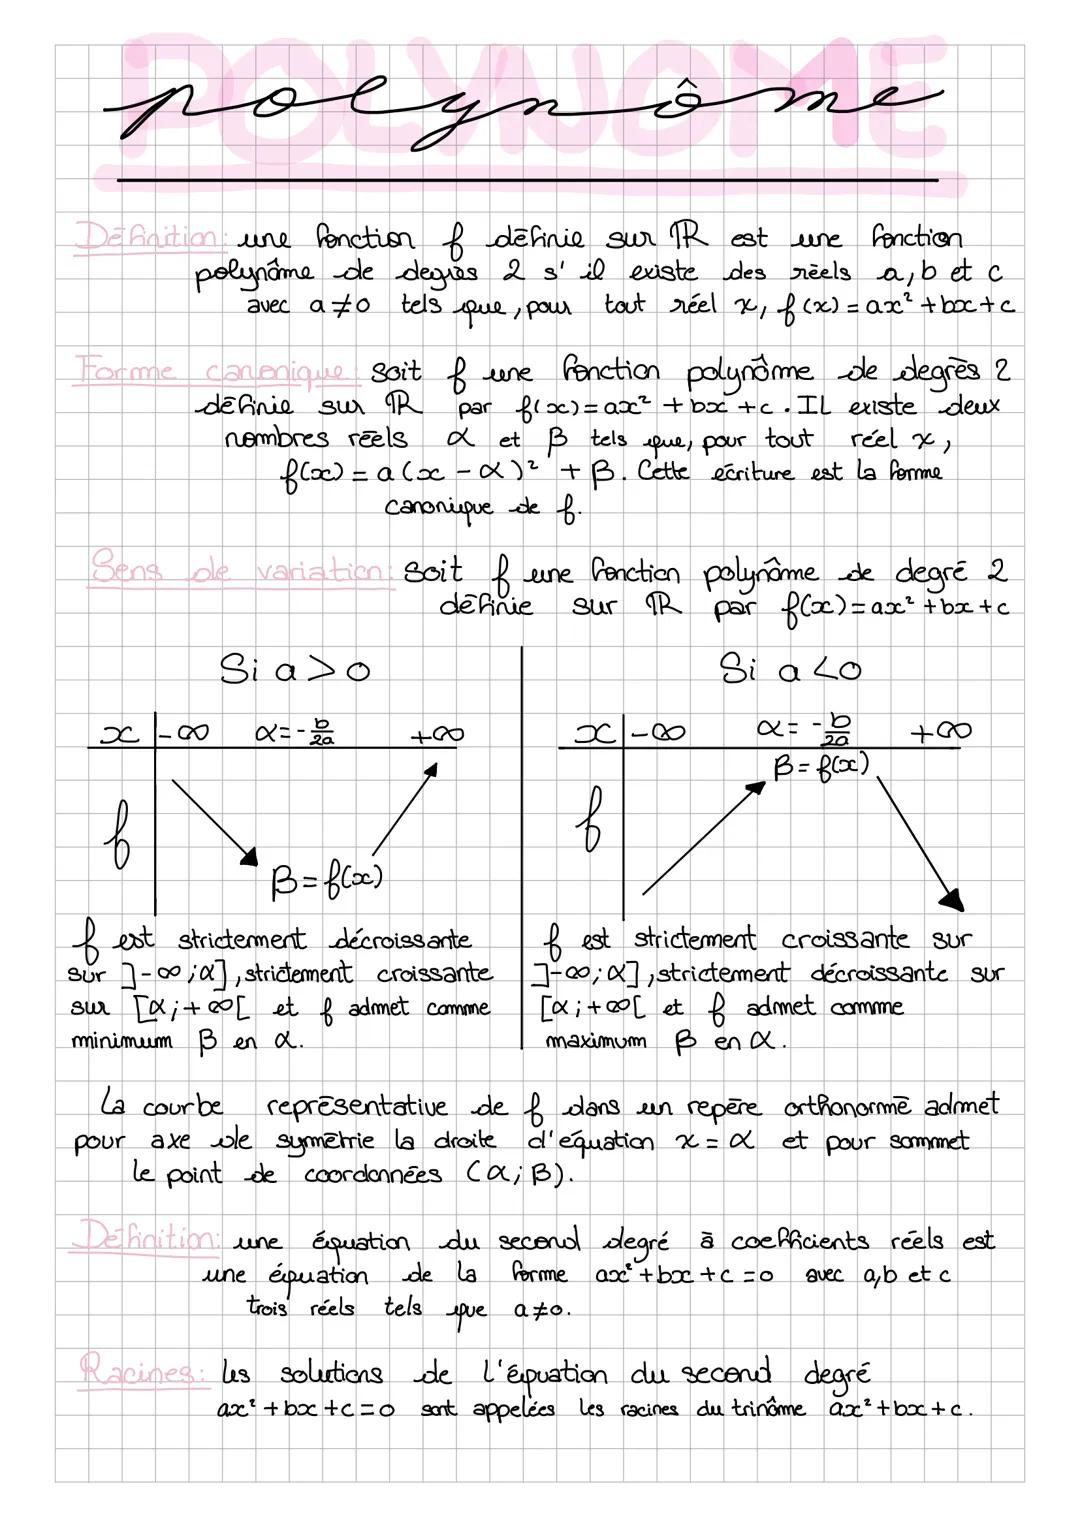 POLYNOME
polynôme
Définition: une fonction f définie sur ℝ est une fonction
polynôme de degrès 2 s'il existe des réels a, b et c
avec a≠0 tels que, pour tout réel x, f(x) = ax² + bx + c
Forme canonique: soit f une fonction polynôme de degrès 2
définie sur ℝ par f(x) = ax² + bx + c. IL existe deux
nombres réels α et β tels que, pour tout réel x,
f(x) = a(x - α)² + β. Cette écriture est la forme
canonique de f.
Sens de variation: soit f une fonction polynôme de degré 2
définie sur ℝ par f(x) = ax² + bx + c
Si a > 0
x -∞ α = -b/2a +∞
f
β = f(x)
f est strictement décroissante
sur ]-∞; α], strictement croissante
sur [α; +∞[ et f admet comme
minimum β en α.
Si a < 0
x -∞ α = -b/2a +∞
β = f(x)
f
f est strictement croissante sur
]-∞; α], strictement décroissante sur
[α; +∞[ et f admet comme
maximum β en α.
La courbe représentative de f dans un repère orthonormé admet
pour axe de symétrie la droite d'équation x = α et pour sommet
le point de coordonnées (α; β).
Définition: une équation du second degré à coefficients réels est
une équation de la forme ax² + bx + c = 0 avec a, b et c
trois réels tels que a≠0.
Racines: les solutions de l'équation du second degré
ax² + bx + c = 0 sont appelées les racines du trinôme ax² + bx + c.